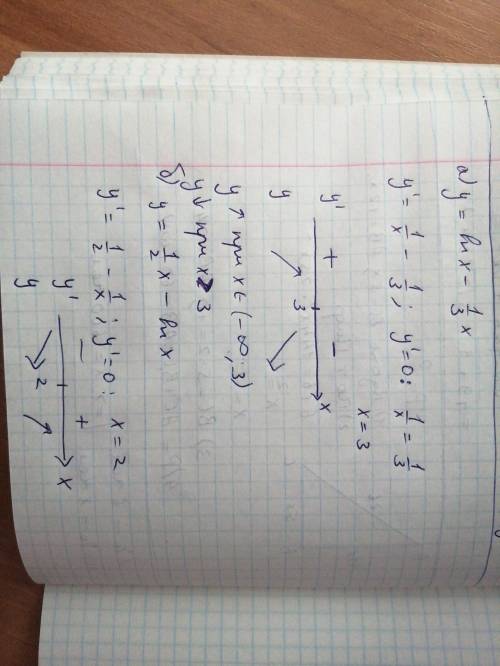 а) y = ln x - 1/3 x
y' = 1/x - 1/3; y'=0: 1/x = 1/3
x = 3
y' + - x
y 3
y ↑ при x ∈ (-∞; 3)
y ↓ при x > 3
б) y = 1/2 x - ln x
y' = 1/2 - 1/x; y'=0: x = 2
y' - + x
y 2